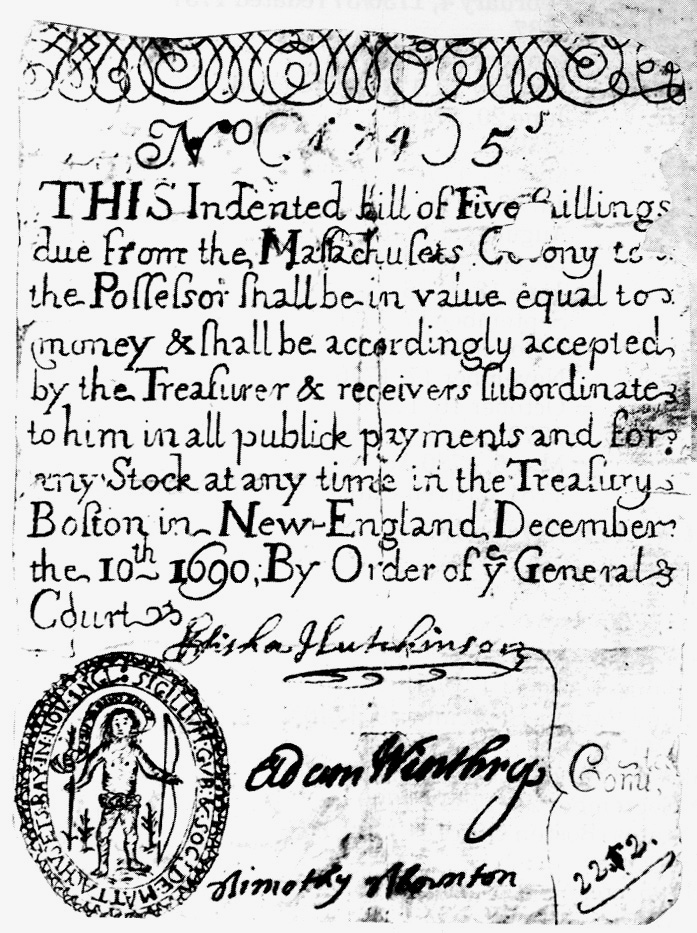 No (1741) 5s
THIS Indented bill of Five Shillings
due from the Maſſachuſets Colony to
the Poſſeſsor ſhall be in value equal to
money & ſhall be accordingly accepted
by the Treaſurer & receivers ſubordinate
to him in all publick payments and for
any Stock at any time in the Treaſury
Boſton in New-England, December
the 10th 1690; By Order of ye General
Court
Eliſha Hutchinson
Adam Winthrop
Timothy Thornton
Comtee
SIGILLVM GVB & SOC DE MATTACHVSETS BAY IN NOV ANGL